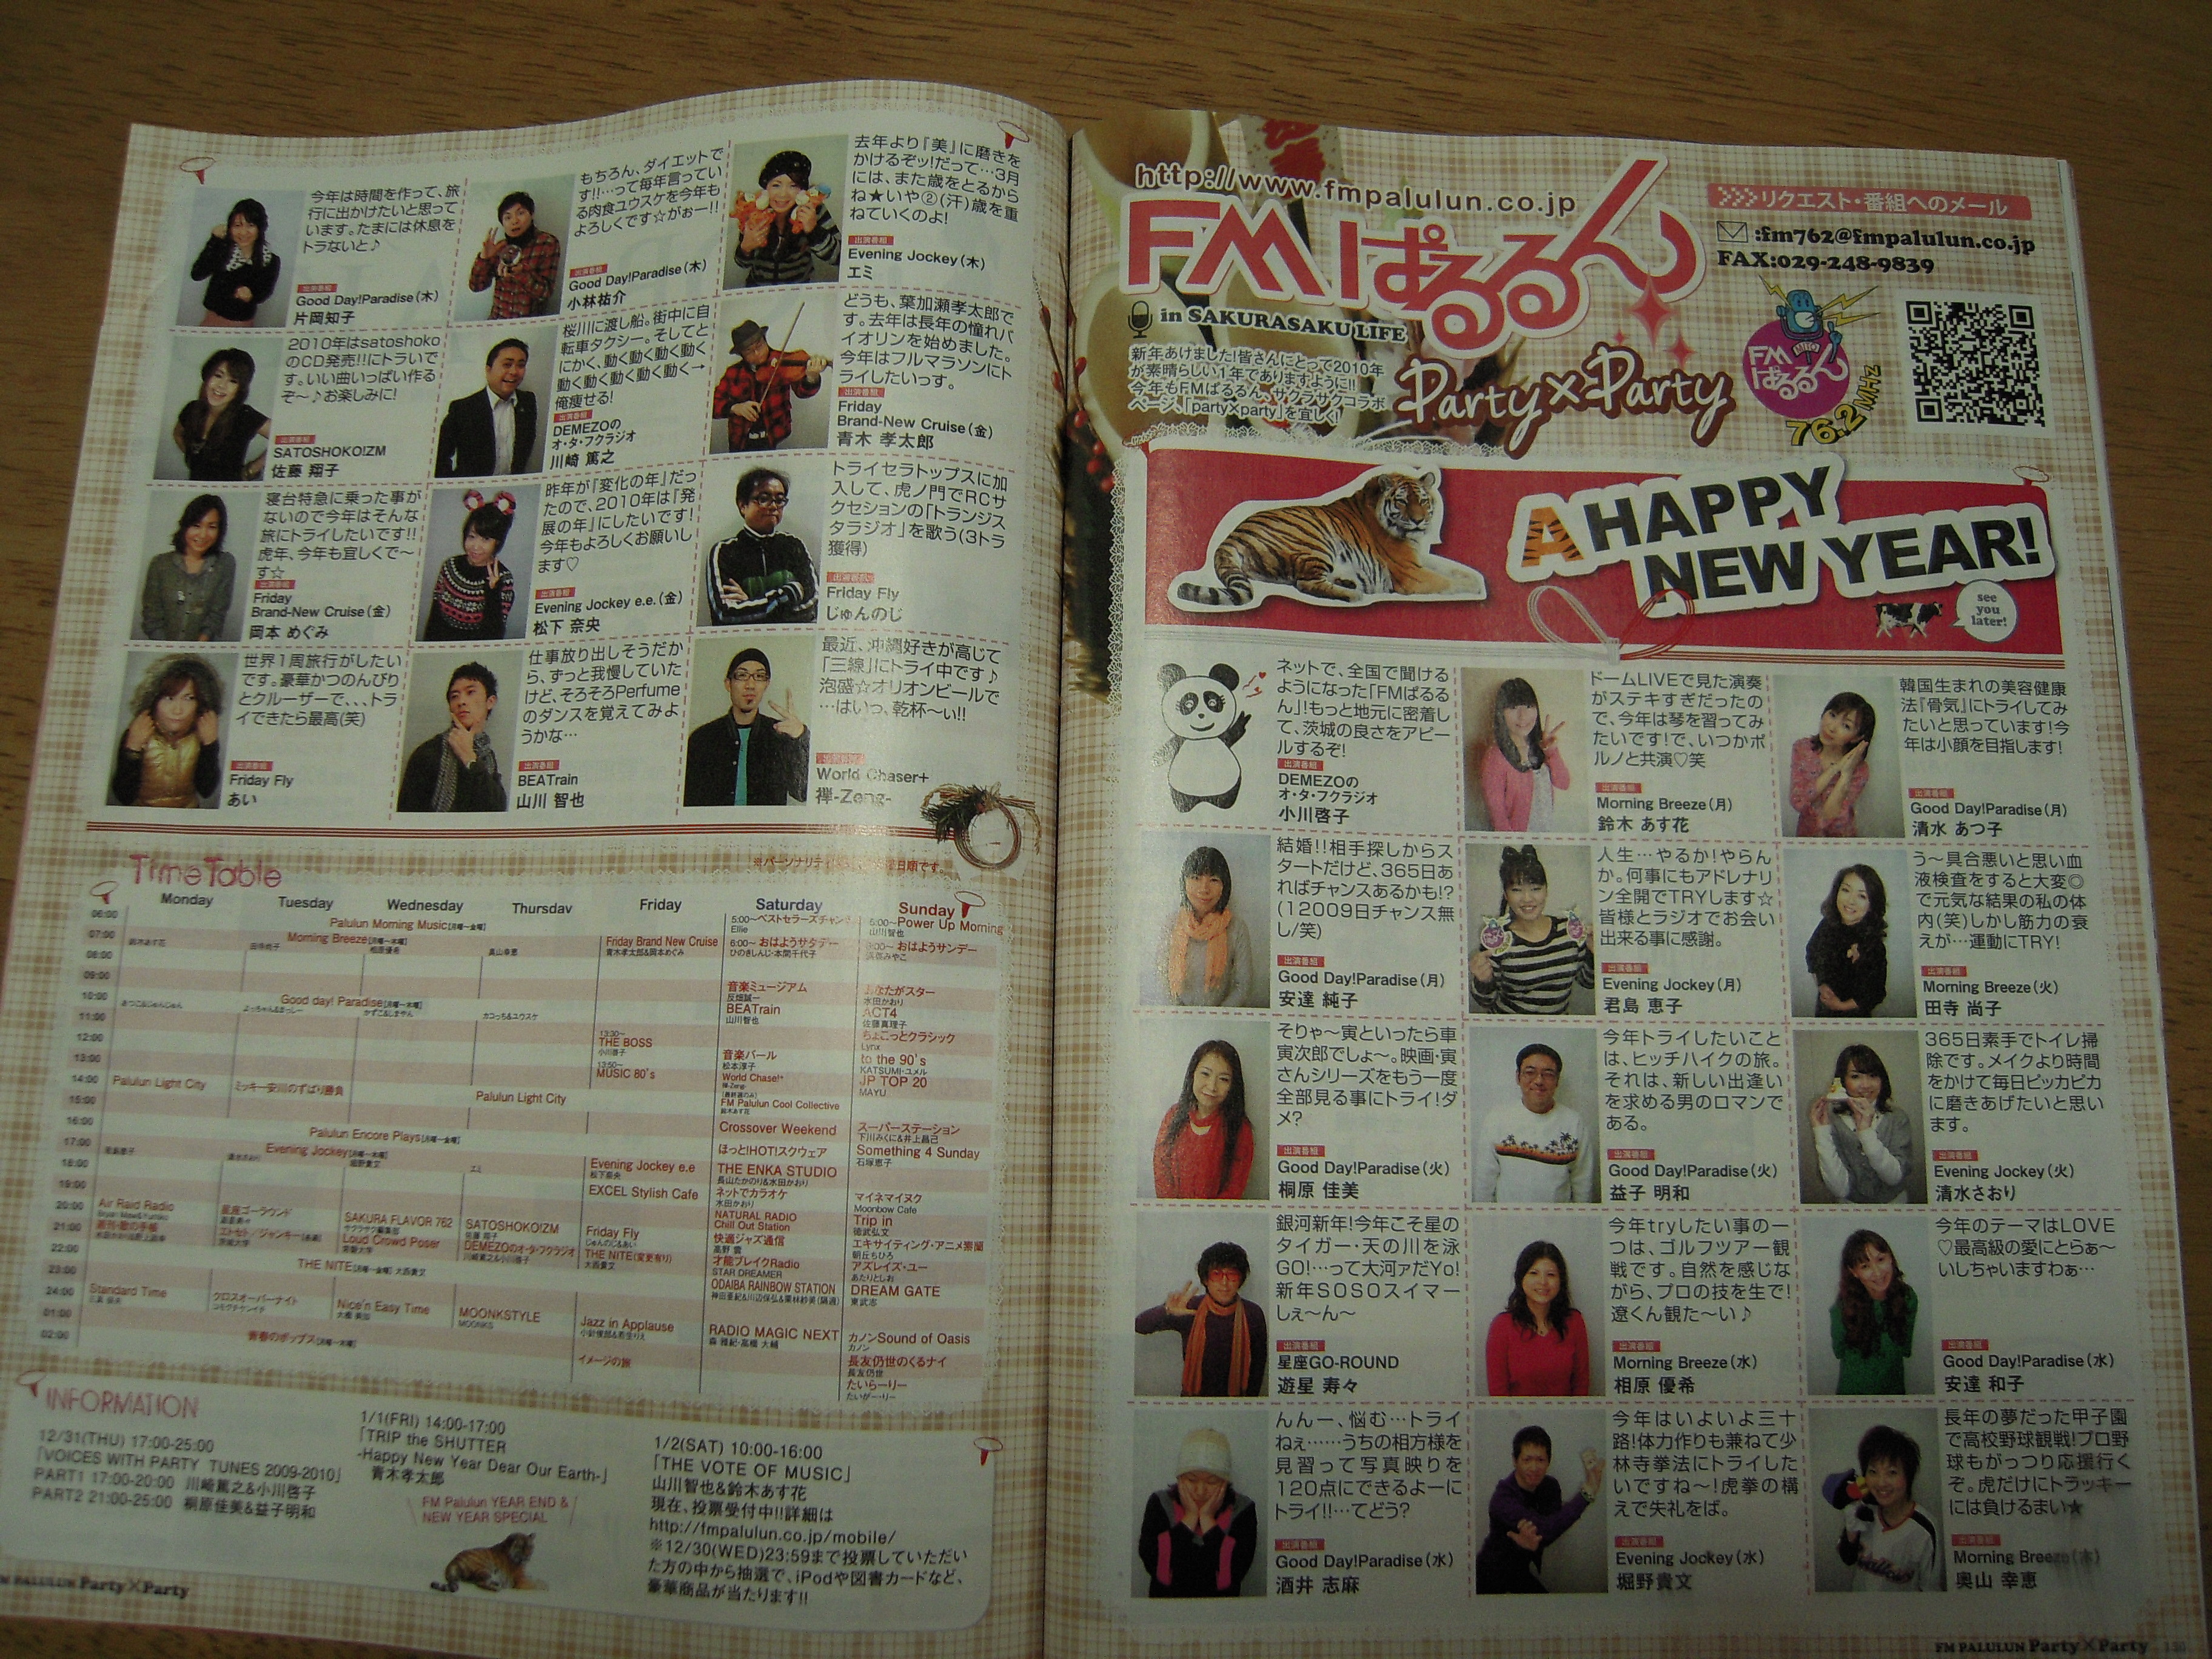 今年は時間を作って、旅
行に出かけたいと思って
います。たまには休息を
トラないと♪
出演番組
Good Day!Paradise(木)
片岡知子
もちろん、ダイエットで
す!!…って毎年言ってい
る肉食ユウスケを今年も
よろしくです☆がぉー!!
出演番組
Good Day!Paradise(木)
小林祐介
去年より『美』に磨きを
かけるぞッ!だって…3月
には、また歳をとるから
ね★いや②(汗)歳を重
ねていくのよ!
出演番組
Evening Jockey(木)
エミ
2010年はsatoshoko
のCD発売!!にトライで
す。いい曲いっぱい作る
ぞ〜♪お楽しみに!
出演番組
SATOSHOKO!ZM
佐藤 翔子
桜川に渡し船。街中に自
転車タクシー。そしてと
にかく、動く動く動く動く
動く動く動く動く動く→
俺痩せる!
出演番組
DEMEZOの
オ・タ・フクラジオ
川崎 篤之
どうも、葉加瀬孝太郎で
す。去年は長年の憧れバ
イオリンを始めました。
今年はフルマラソンにト
ライしたいっす。
出演番組
Friday
Brand-New Cruise(金)
青木 孝太郎
寝台特急に乗った事が
ないので今年はそんな
旅にトライしたいです!!
虎年、今年も宜しくで〜
す☆
出演番組
Friday
Brand-New Cruise(金)
岡本 めぐみ
昨年が『変化の年』だっ
たので、2010年は『発
展の年』にしたいです!
今年もよろしくお願いし
ます♡
出演番組
Evening Jockey e.e.(金)
松下 奈央
トライセラトップスに加
入して、虎ノ門でRCサ
クセションの「トランジス
タラジオ」を歌う(3トラ
獲得)
出演番組
Friday Fly
じゅんのじ
世界1周旅行がしたい
です。豪華かつのんびり
とクルーザーで、、、トラ
イできたら最高(笑)
出演番組
Friday Fly
あい
仕事放り出しそうだか
ら、ずっと我慢していた
けど、そろそろPerfume
のダンスを覚えてみよ
うかな…
出演番組
BEATrain
山川 智也
最近、沖縄好きが高じて
「三線」にトライ中です♪
泡盛☆オリオンビールで
…はいっ、乾杯〜ぃ!!
World Chaser+
禅-Zeng-
※パーソナリティ
日順です。
TimeTable
Monday Tuesday Wednesday Thursday Friday Saturday Sunday
06:00
07:00
08:00
09:00
10:00
11:00
12:00
13:00
14:00
15:00
16:00
17:00
18:00
19:00
20:00
21:00
22:00
23:00
24:00
01:00
02:00
Palulun Morning Music[月曜〜金曜]
Morning Breeze[月曜〜木曜]
鈴木あす花
田寺尚子
相原優希
奥山幸恵
Good day! Paradise[月曜〜木曜]
カコっち&ユウスケ
Palulun Light City
ミッキー安川のずばり勝負
Palulun Light City
Palulun Encore Plays[月曜〜金曜]
Evening Jockey[月曜〜木曜]
堀野貴文
エミ
Air Raid Radio
星座ゴーラウンド
SAKURA FLAVOR 762
Loud Crowd Poser
SATOSHOKO!ZM
佐藤 翔子
DEMEZOのオ・タ・フクラジオ
川崎篤之&小川啓子
THE NITE[月曜〜金曜] 大西貴文
Standard Time
クロスオーバーナイト
Nice'n Easy Time
MOONKSTYLE
MOONKS
青春のポップス[月曜〜木曜]
Friday Brand New Cruise
青木孝太郎&岡本めぐみ
13:30〜
THE BOSS
小川啓子
13:50〜
MUSIC 80's
Evening Jockey e.e
松下奈央
EXCEL Stylish Cafe
Friday Fly
じゅんのじ&あい
THE NITE(変更有り)
大西貴文
Jazz in Applause
イメージの旅
5:00〜ベストセラーズチャン
Ellie
6:00〜 おはようサタデー
ひのきしんじ・本間千代子
音楽ミュージアム
反畑誠一
BEATrain
山川智也
音楽バール
松本淳子
World Chase!+
FM Palulun Cool Collective
鈴木あす花
Crossover Weekend
ほっと!HOT!スクウェア
THE ENKA STUDIO
長山たかのり&水田かおり
ネットでカラオケ
水田かおり
NATURAL RADIO
Chill Out Station
快適ジャズ通信
高野 雲
才能ブレイクRadio
STAR DREAMER
ODAIBA RAINBOW STATION
RADIO MAGIC NEXT
森 雅紀・高橋 大輔
5:00〜Power Up Morning
山川智也
おはようサンデー
あなたがスター
水田かおり
ACT4
佐藤真理子
ちょこっとクラシック
Lynx
to the 90's
KATSUMI・ユメル
JP TOP 20
MAYU
スーパーステーション
下川みくに&井上昌己
Something 4 Sunday
石塚恵子
マイネマイヌク
Moonbow Cafe
Trip in
徳武弘文
エキサイティング・アニメ票蘭
朝丘ちひろ
アズレイズ・ユー
あたりとしお
DREAM GATE
東武志
カノンSound of Oasis
カノン
長友仍世のくるナイ
長友仍世
たいらーりー
たいがー・りー
INFORMATION
12/31(THU) 17:00-25:00
「VOICES WITH PARTY TUNES 2009-2010」
PART1 17:00-20:00 川崎篤之&小川啓子
PART2 21:00-25:00 桐原佳美&益子明和
1/1(FRI) 14:00-17:00
「TRIP the SHUTTER
-Happy New Year Dear Our Earth-」
青木孝太郎
FM Palulun YEAR END &
NEW YEAR SPECIAL
1/2(SAT) 10:00-16:00
「THE VOTE OF MUSIC」
山川智也&鈴木あす花
現在、投票受付中!!詳細は
http://fmpalulun.co.jp/mobile/
※12/30(WED)23:59まで投票していただい
た方の中から抽選で、iPodや図書カードなど、
豪華商品が当たります!!
FM PALULUN Party×Party
http://www.fmpalulun.co.jp
FMぱるるん
in SAKURASAKU LIFE
新年あけました!皆さんにとって2010年
が素晴らしい1年でありますように!!
今年もFMぱるるん、サクラサクコラボ
ページ、「party×party」を宜しく!
Party×Party
リクエスト・番組へのメール
:fm762@fmpalulun.co.jp
FAX:029-248-9839
FM
MITO
ぱるるん
76.2MHz
A HAPPY
NEW YEAR!
see
you
later!
ネットで、全国で聞ける
ようになった「FMぱるる
ん」!もっと地元に密着し
て、茨城の良さをアピー
ルするぞ!
出演番組
DEMEZOの
オ・タ・フクラジオ
小川啓子
ドームLIVEで見た演奏
がステキすぎだったの
で、今年は琴を習ってみ
たいです!で、いつかポ
ルノと共演♡笑
出演番組
Morning Breeze(月)
鈴木 あす花
韓国生まれの美容健康
法『骨気』にトライしてみ
たいと思っています!今
年は小顔を目指します!
出演番組
Good Day!Paradise(月)
清水 あつ子
結婚!!相手探しからス
タートだけど、365日あ
ればチャンスあるかも!?
(12009日チャンス無
し/笑)
出演番組
Good Day!Paradise(月)
安達 純子
人生…やるか!やらん
か。何事にもアドレナリ
ン全開でTRYします☆
皆様とラジオでお会い
出来る事に感謝。
出演番組
Evening Jockey(月)
君島 恵子
う〜具合悪いと思い血
液検査をすると大変◎
で元気な結果の私の体
内(笑)しかし筋力の衰
えが…運動にTRY!
出演番組
Morning Breeze(火)
田寺 尚子
そりゃ〜寅といったら車
寅次郎でしょ〜。映画・寅
さんシリーズをもう一度
全部見る事にトライ!ダ
メ?
出演番組
Good Day!Paradise(火)
桐原 佳美
今年トライしたいこと
は、ヒッチハイクの旅。
それは、新しい出逢い
を求める男のロマンで
ある。
出演番組
Good Day!Paradise(火)
益子 明和
365日素手でトイレ掃
除です。メイクより時間
をかけて毎日ピッカピカ
に磨きあげたいと思い
ます。
出演番組
Evening Jockey(火)
清水さおり
銀河新年!今年こそ星の
タイガー・天の川を泳
GO!…って大河ァだYo!
新年SOSOスイマー
しぇ〜ん〜
出演番組
星座GO-ROUND
遊星 寿々
今年tryしたい事の一
つは、ゴルフツアー観
戦です。自然を感じな
がら、プロの技を生で!
遼くん観た〜い♪
出演番組
Morning Breeze(水)
相原 優希
今年のテーマはLOVE
♡最高級の愛にとらぁ〜
いしちゃいますわぁ…
出演番組
Good Day!Paradise(水)
安達 和子
んんー、悩む…トライ
ねぇ……うちの相方様を
見習って写真映りを
120点にできるよーに
トライ!!…てどう?
出演番組
Good Day!Paradise(水)
酒井 志麻
今年はいよいよ三十
路!体力作りも兼ねて少
林寺拳法にトライした
いですね〜!虎拳の構
えで失礼をば。
出演番組
Evening Jockey(水)
堀野貴文
長年の夢だった甲子園
で高校野球観戦!プロ野
球もがっつり応援行く
ぞ。虎だけにトラッキー
には負けるまい★
出演番組
Morning Breeze(木)
奥山 幸恵
FM PALULUN Party×Party